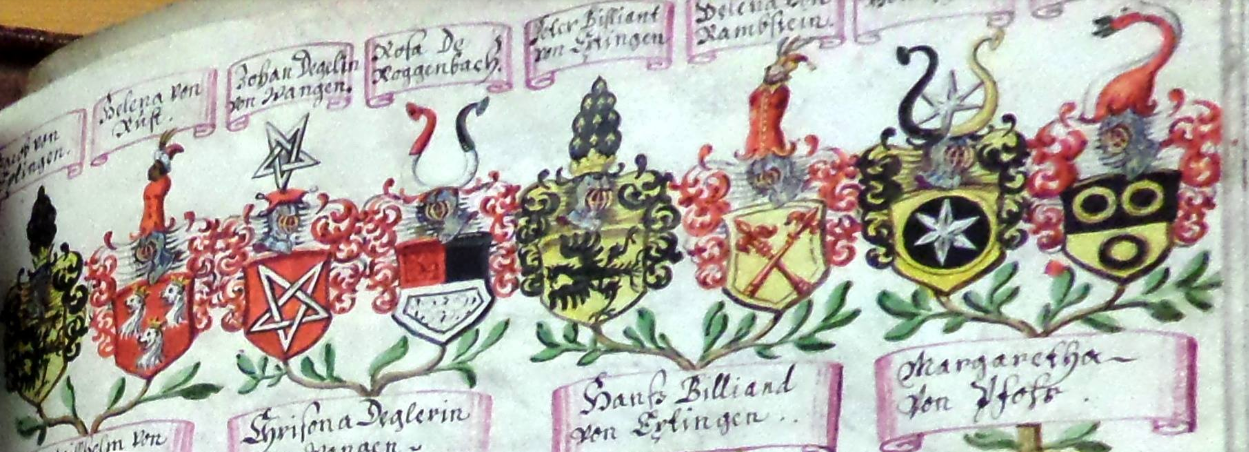 von
Helena von
Rust.
Johan Degelin
von Wangen.
Rosa De
Roggenbach.
Peter Billiant
von Eptingen
Helena von
Rambstein.
von
Chrisona Deglerin
Wangen
Hanß Billiand
von Eptingen
Margaretha
von Pfohr.